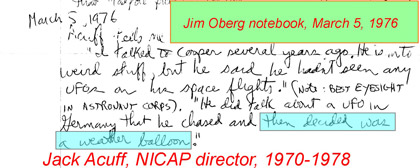 March 5, 1976
Jim Oberg notebook, March 5, 1976
Acuff tells me
"I talked to Cooper several years ago. He is into
weird stuff, but he said he hadn't seen any
UFOs on his space flights." (NOTE: BEST EYESIGHT
IN ASTRONAUT CORPS). "He did talk about a UFO in
Germany that he chased and then decided was
a weather balloon."
Jack Acuff, NICAP director, 1970-1978